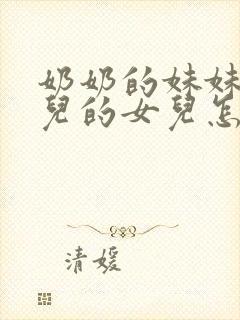 奶奶的妹妹
兒的女兒怎
清媛